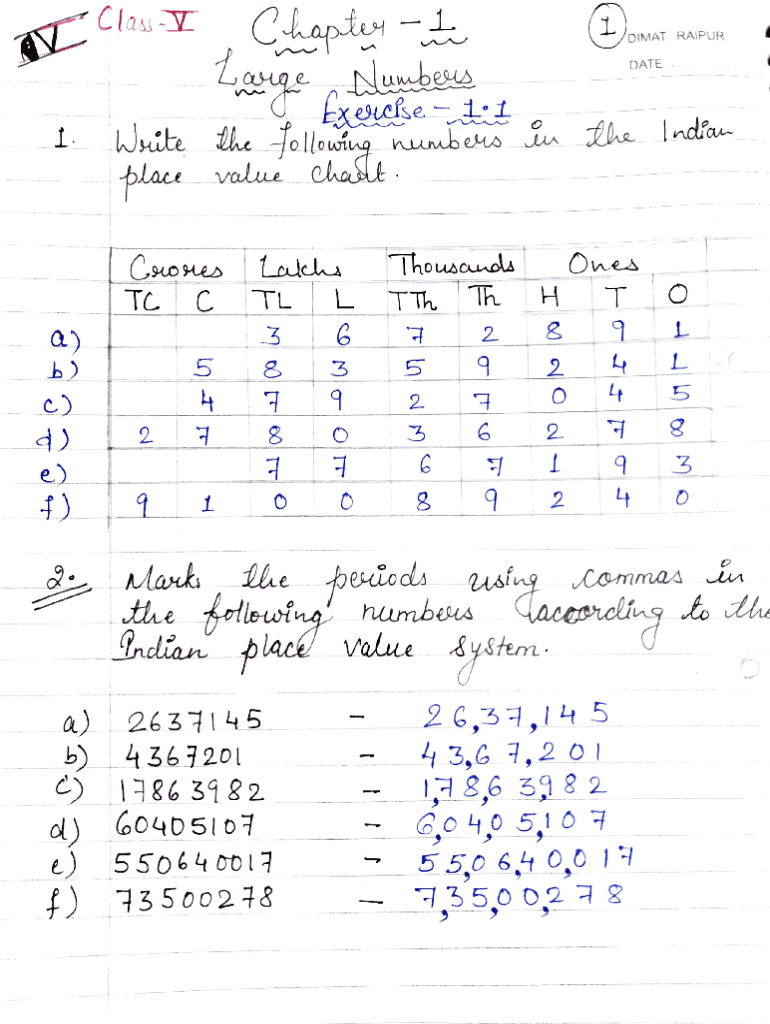 V Class-V Chapter - 1 1 DIMAT RAIPUR
Large Numbers DATE
Exercise - 1.1
1. Write the following numbers in the Indian
place value chart.
Crores Lakhs Thousands Ones
TC C TL L TTh Th H T O
a) 3 6 7 2 8 9 1
b) 5 8 3 5 9 2 4 1
c) 4 7 9 2 7 0 4 5
d) 2 7 8 0 3 6 2 7 8
e) 7 7 6 7 1 9 3
f) 9 1 0 0 8 9 2 4 0
2. Mark the periods using commas in
the following numbers according to the
Indian place value system.
a) 2637145 - 26,37,145
b) 4367201 - 43,67,201
c) 17863982 - 1,78,63,982
d) 60405107 - 6,04,05,107
e) 550640017 - 55,06,40,017
f) 73500278 - 7,35,00,278